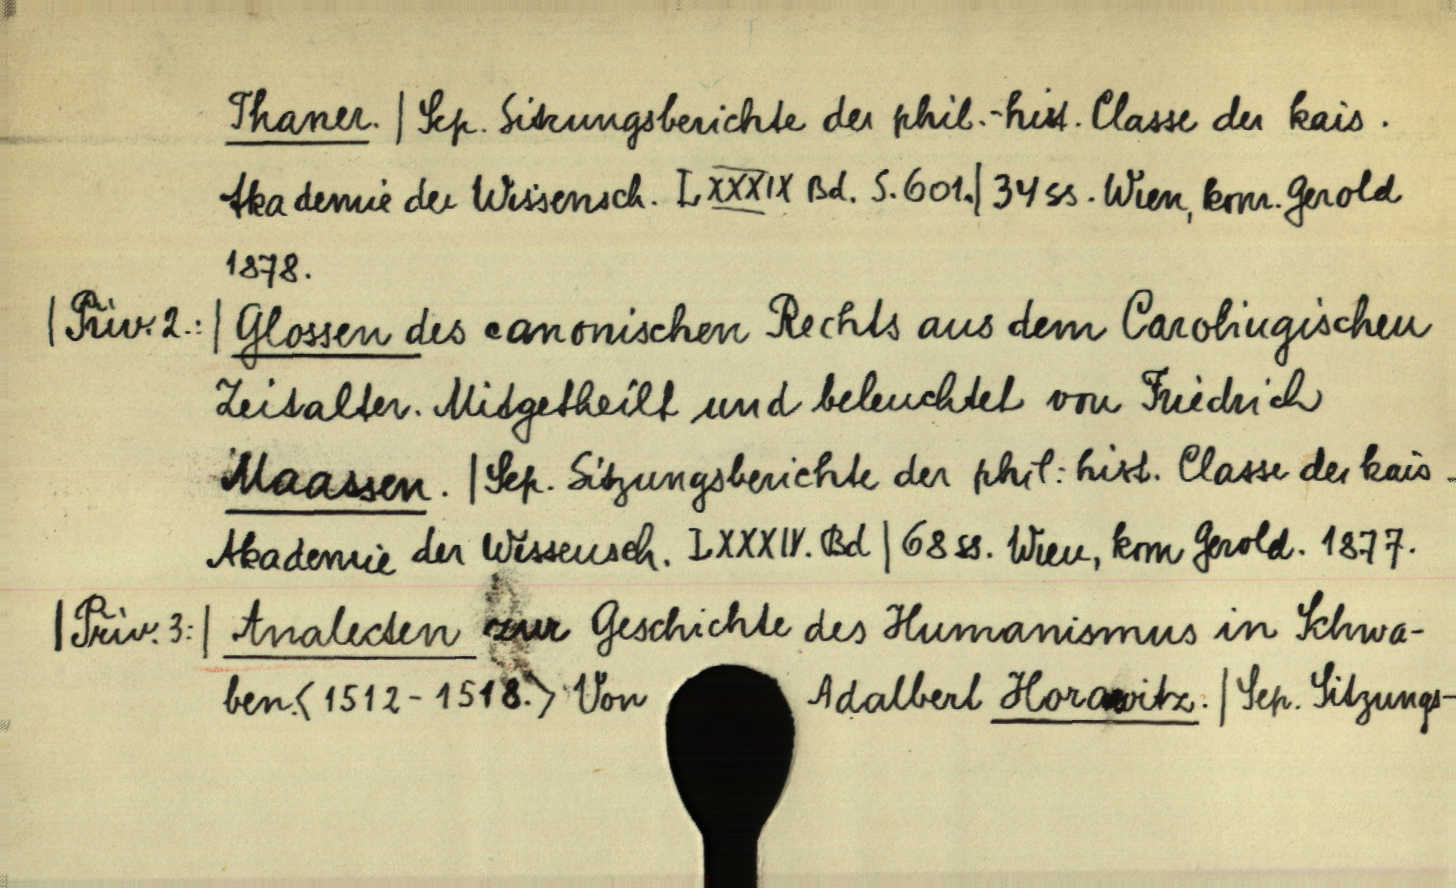 Thaner. | Sep. Sitzungsberichte der phil.-hist. Classe der kais.
Akademie der Wissensch. LXXXIX Bd. S. 601. | 34 ss. Wien, kom. Gerold
1878.
| Priv. 2.: | Glossen des canonischen Rechts aus dem Carolingischen
Zeitalter. Mitgetheilt und beleuchtet von Friedrich
Maassen. | Sep. Sitzungsberichte der phil: hist. Classe der kais.
Akademie der Wissensch. LXXXIV. Bd | 68 ss. Wien, kom Gerold. 1877.
| Priv. 3: | Analecten zur Geschichte des Humanismus in Schwa-
ben. <1512-1518.> Von Adalbert Horawitz. | Sep. Sitzungs-